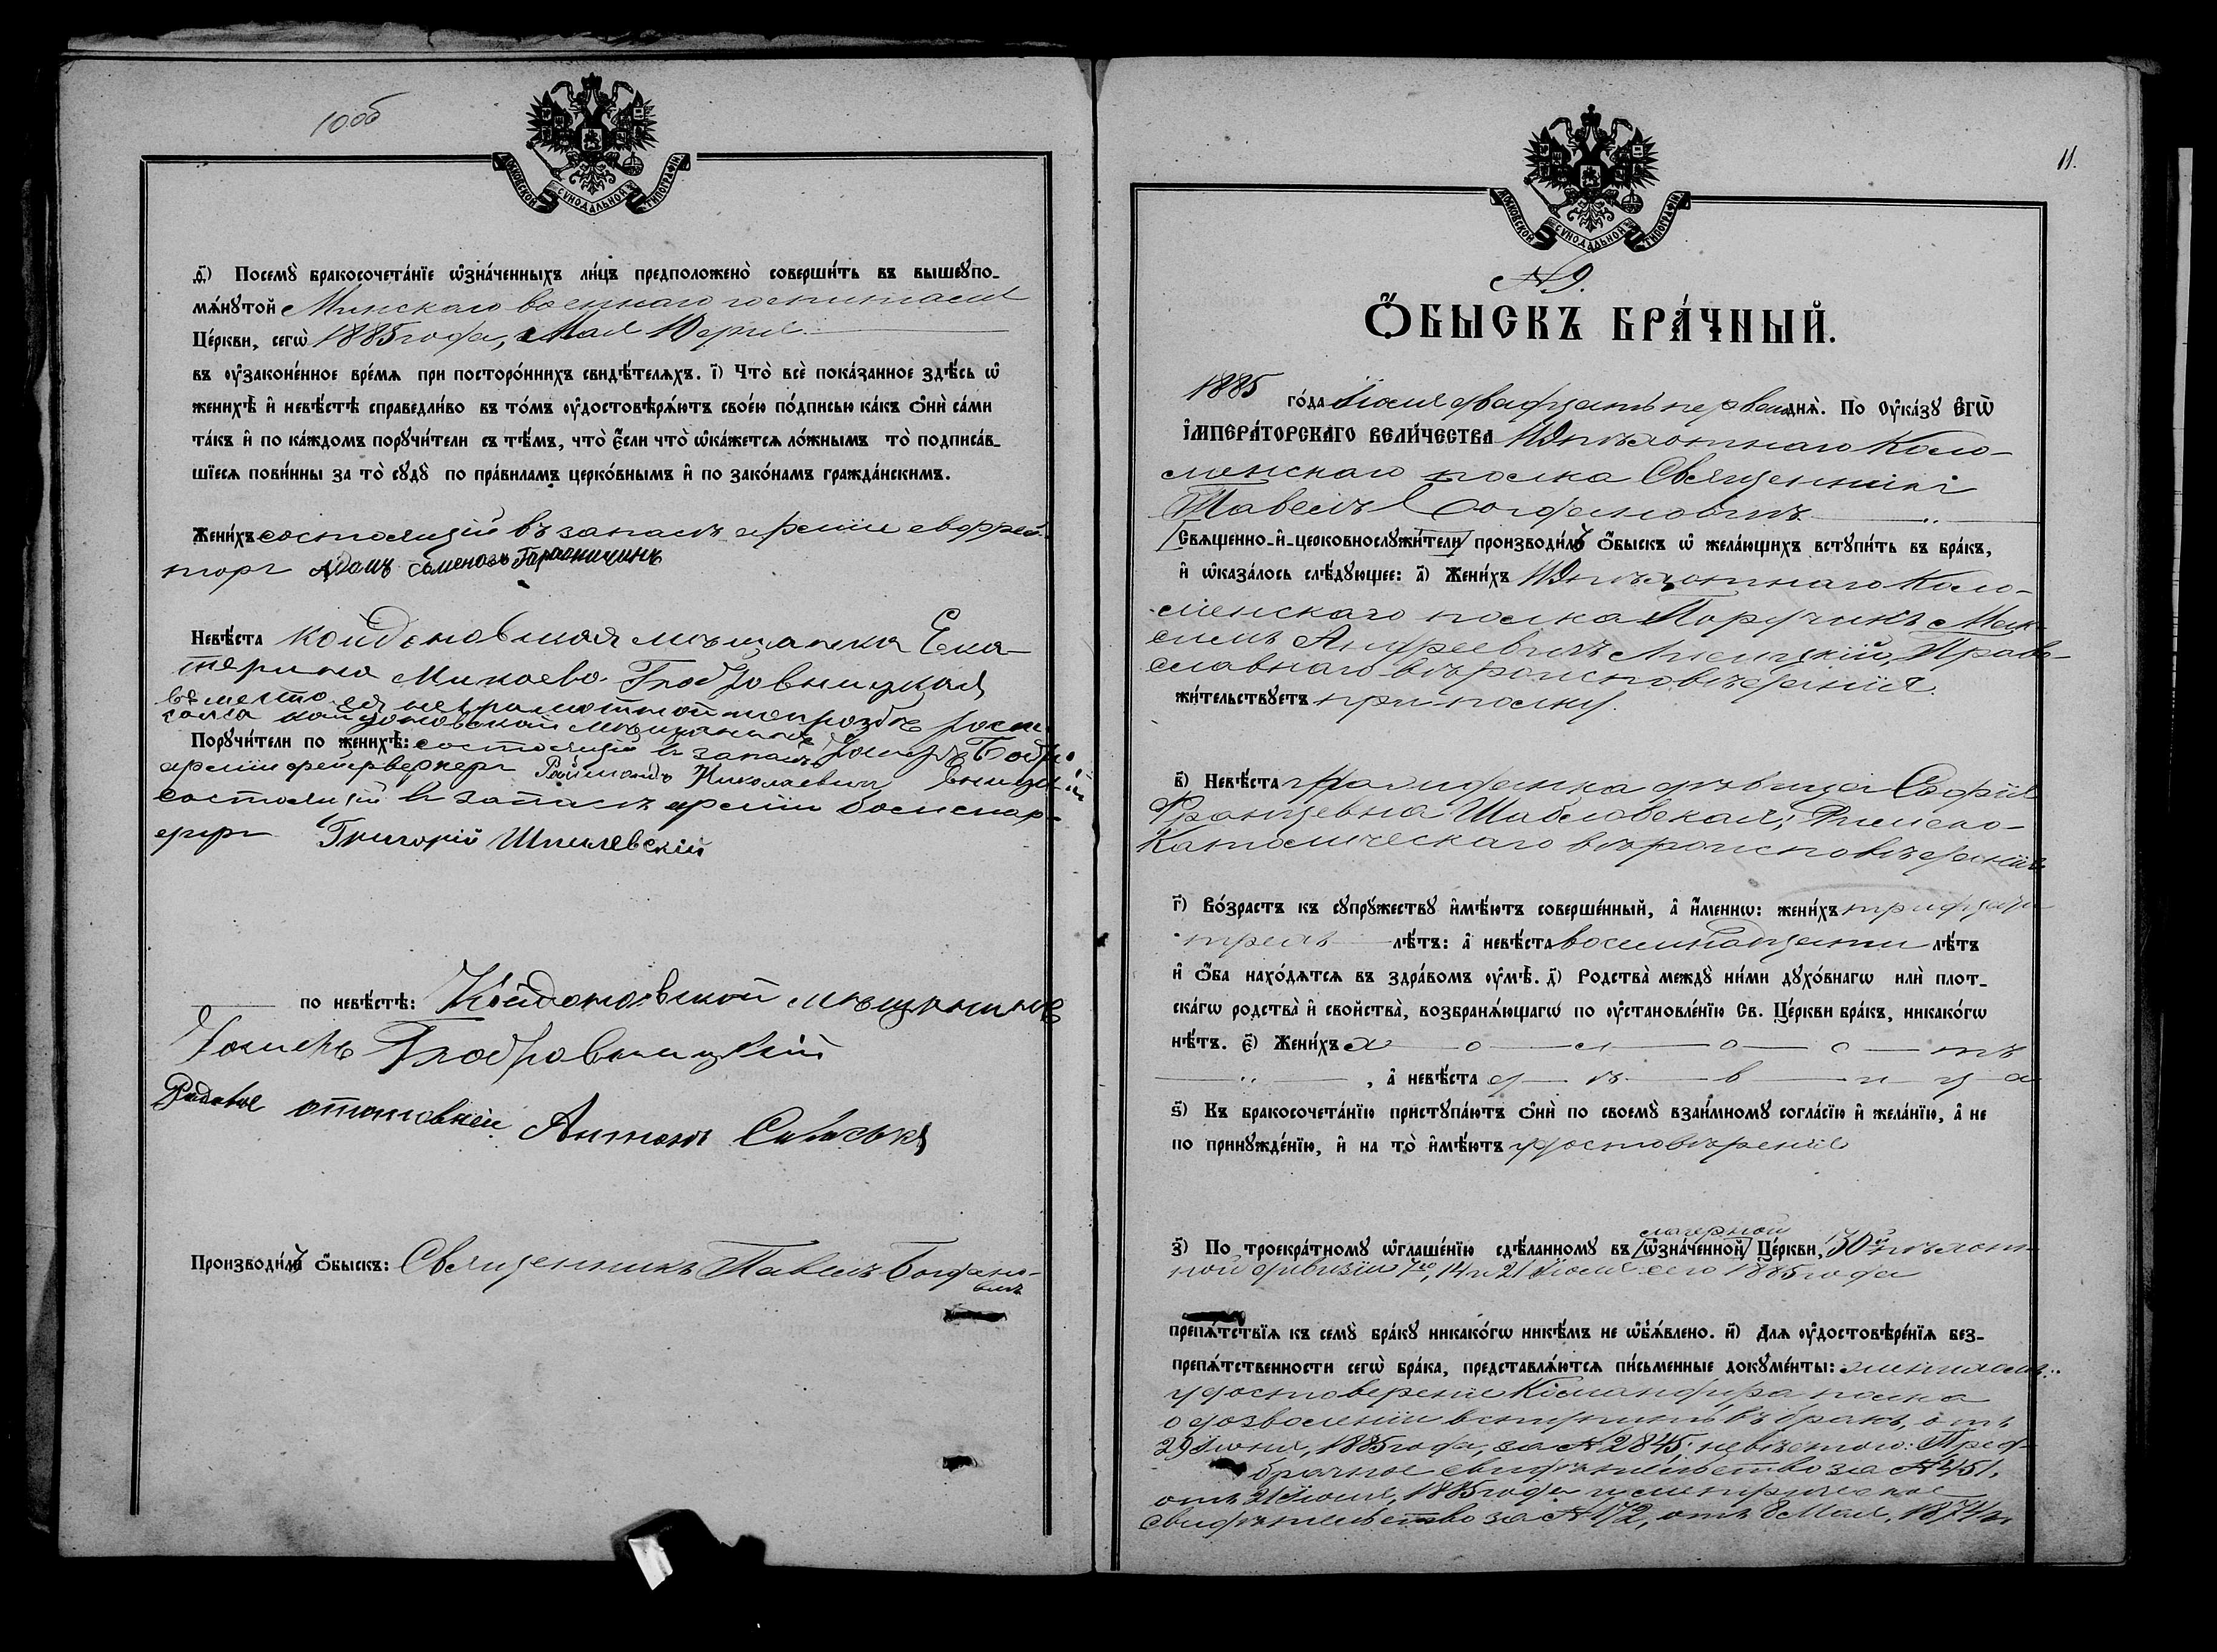 10об
МОСКОВСКОЙ СѴНОДАЛЬНОЙ ТИПОГРАФІИ
д҃) Посемꙋ̀ бракосочета́нїе ѡ҆зна́ченныхъ ли́цъ предположено̀ соверши́ть въ вышеꙋпо-
мѧ́нꙋтой Минскаго военнаго госпиталя
Це́ркви, сегѡ̀ 1885 года, Мая 10 дня
въ ᲂу҆зако́ненное вре́мѧ при посторо́ннихъ свидѣ́телѧхъ. і҃) Что̀ всѐ пока́занное здѣ́сь ѡ҆
женихѣ̀ и҆ невѣ́стѣ справедли́во въ то́мъ ᲂу҆достовѣрѧ́ютъ свое́ю по́дписью ка́къ ѻ҆нѝ са́ми
та́къ и҆ по ка́ждомъ порꙋчи́тели съ тѣ́мъ, что̀ є҆́сли что̀ ѡ҆ка́жетсѧ ло́жнымъ то̀ подписа́в-
шїесѧ пови́нны за то̀ сꙋдꙋ̀ по пра́виламъ церко́внымъ и҆ по зако́намъ гражда́нскимъ.
Жени́хъ состоящій въ запасѣ арміи ефрей-
торъ Адамъ Семеновъ
Невѣ́ста Койдоновская мѣщанка Ека-
терина
вместо ея неграмотной по прозбе роспи-
сался койдоновский мещанинъ
Порꙋчи́тели по женихѣ̀: состоящій въ запасѣ
арміи фейерверкеръ Николаевичъ
состоящій въ запасѣ арміи бомбар-
диръ Григорій Шпилевскій
по невѣ́стѣ: Койдоновской мѣщанинъ
Рядовое Антонъ
Производи́лъ ѻ҆́быскъ: Священникъ Павелъ Богдано-
вичъ
11.
МОСКОВСКОЙ СѴНОДАЛЬНОЙ ТИПОГРАФІИ
№ 9.
Ѻ҆́БЫСКЪ БРА́ЧНЫЙ.
1885 го́да Іюля двадцать перваго днѧ̀. По Оу҆ка́зꙋ Є҆гѡ̀
І҆мпера́торскагѡ Вели́чества 119 пѣхотнаго Коло-
менскаго полка Священникъ
Павелъ Богдановичъ
(Свѧщенно-и҆-церковнослꙋжи́тели) производи́лъ ѻ҆́быскъ ѡ҆ жела́ющихъ встꙋпи́ть въ бра́къ,
и҆ ѡ҆каза́лось слѣ́дꙋющее: а҃) Жени́хъ 119 пѣхотнаго Коло-
менскаго полка Поручикъ Мак-
симъ Андреевичъ Лисицкій, Право-
славнаго вѣроисповѣданія
жи́тельствꙋетъ при полку.
в҃) Невѣ́ста дѣвица Софія
Францевна Шабловская, Римско-
Католическаго вѣроисповѣданія
г҃) Во́зрастъ къ сꙋпрꙋ́жествꙋ и҆мѣ́ютъ соверше́нный, а҆ и҆́меннѡ: жени́хъ тридцати
трехъ лѣ́тъ: а҆ невѣ́ста восемнадцати лѣ́тъ
и҆ ѻ҆́ба нахо́дѧтсѧ въ здра́вомъ ᲂу҆мѣ̀. д҃) Родства̀ междꙋ̀ ни́ми дꙋхо́внагѡ илѝ плот-
ска́гѡ родства̀ и҆ свойства̀, возбранѧ́ющагѡ по ᲂу҆становле́нїю Св. Це́ркви бра́къ, никако́гѡ
нѣ́тъ. є҃) Жени́хъ х о л о с тъ
, а҆ невѣ́ста д ѣ в и ц а
ѕ҃) Къ бракосочета́нїю пристꙋпа́ютъ ѻ҆нѝ по своемꙋ̀ взаи́мномꙋ согла́сїю и҆ жела́нїю, а҆ не
по принꙋжде́нїю, и҆ на то̀ и҆мѣ́ютъ удостовѣреніе
лагерной
з҃) По троекра́тномꙋ ѡ҆глаше́нїю сдѣ́ланномꙋ въ (ѡ҆зна́ченной) Це́ркви, 30й пѣхот-
ной дивизіи 7го, 14 и 21 Іюля сего 1885 года
препѧ́тствїѧ къ семꙋ̀ бра́кꙋ никако́гѡ никѣ́мъ не ѡ҆б̾ѧ́влено. и҃) Длѧ ᲂу҆достовѣре́нїѧ без-
препѧ́тственности сегѡ̀ бра́ка, представлѧ́ютсѧ пи́сьменные докꙋме́нты: женихомъ:
удостовереніе Командира полка
о дозволеніи вступить въ бракъ, отъ
29 Іюня, 1885 года, за № 2845; невѣстою: Пред-
брачное свидѣтельство за № 451,
отъ 21 Іюля, 1885 года и метрическое
свидѣтельство за № 172, отъ 8 Мая, 1874 г.